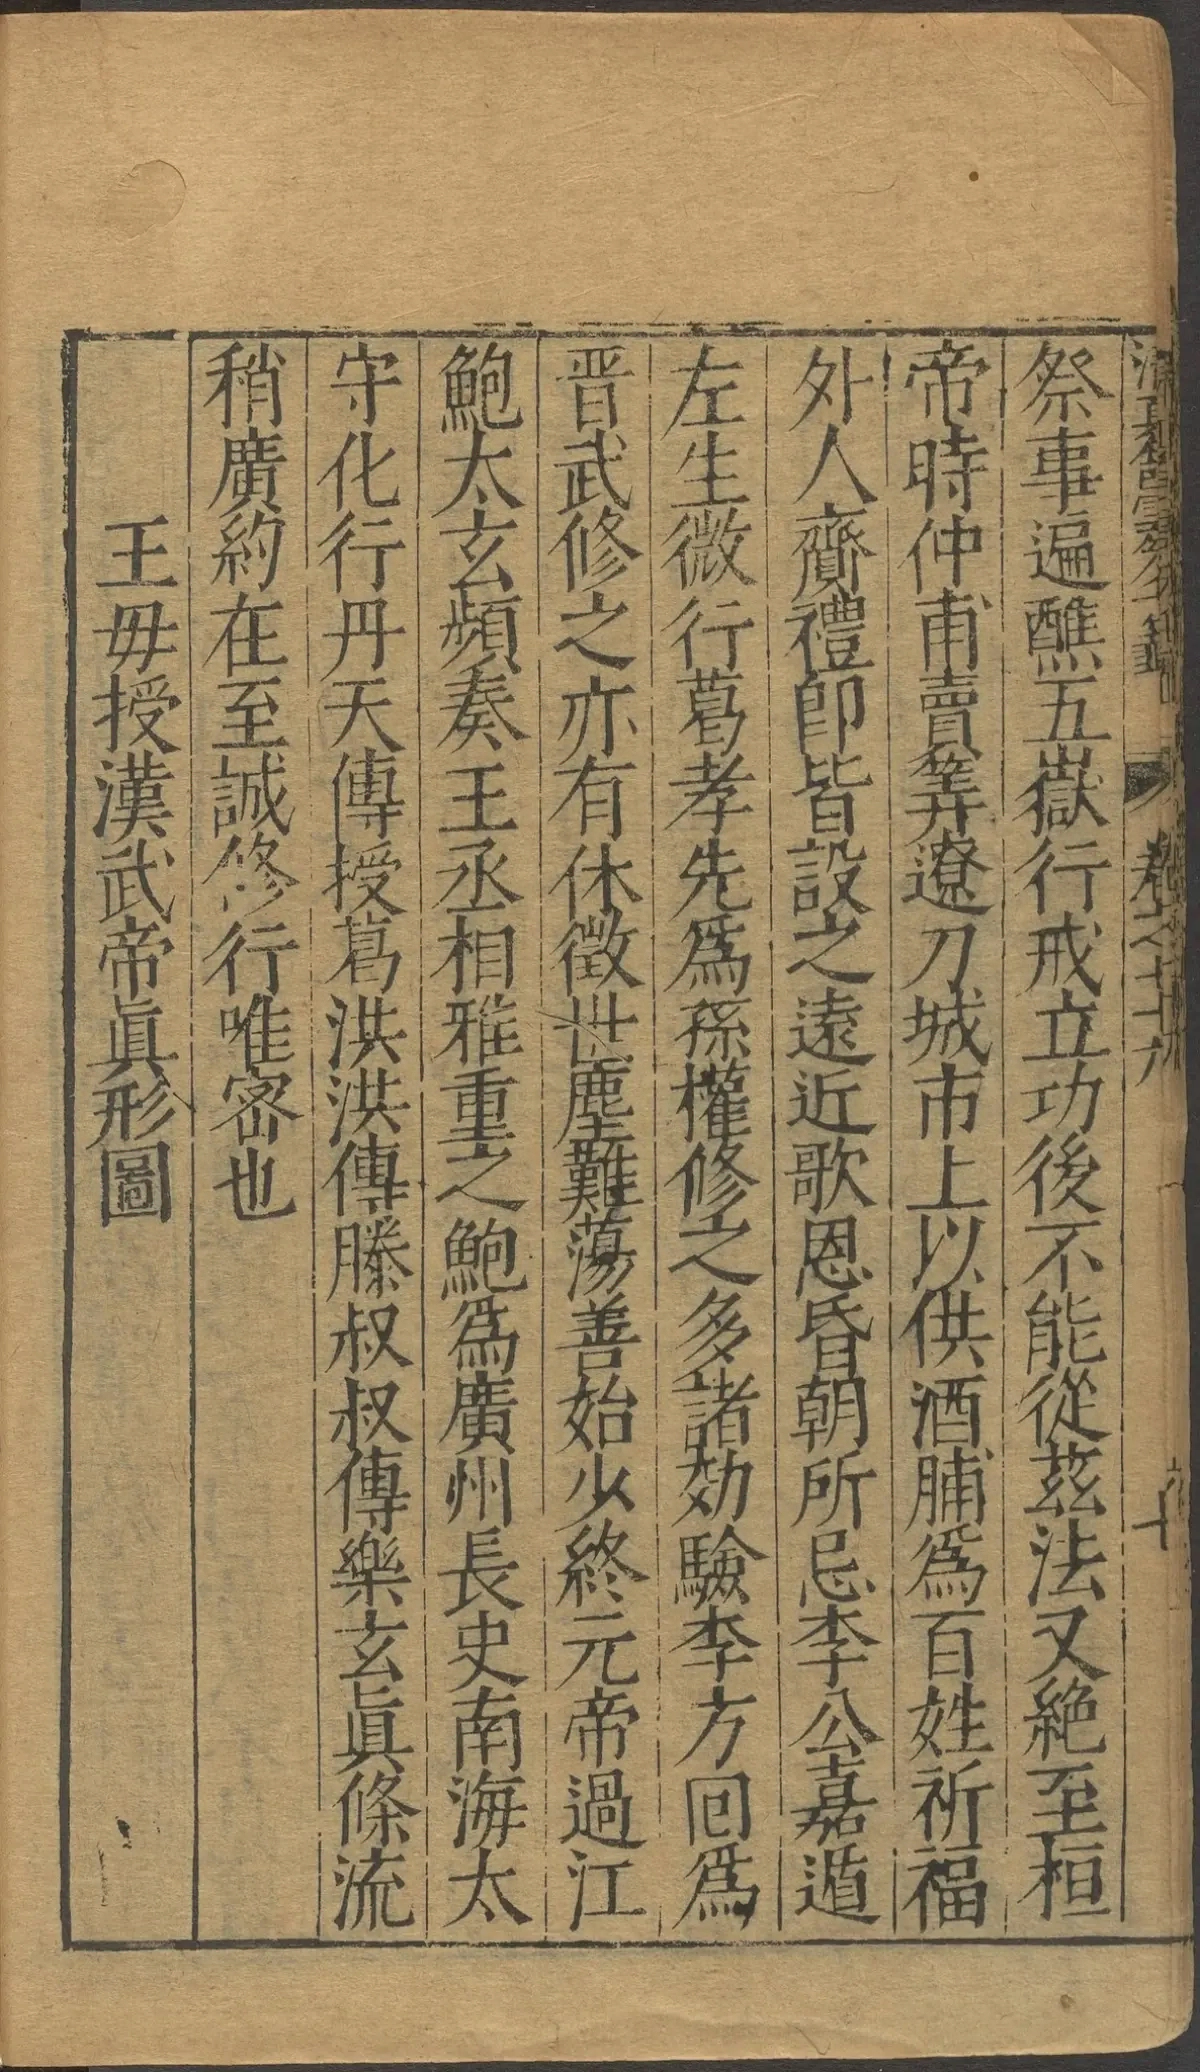 祭事遍醮五嶽行戒立功後不能從茲法又絶至桓
帝時仲甫賣筭遼刀城市上以供酒脯爲百姓祈福
外人齎禮即皆設之遠近歌恩昏朝所忌李公嘉遁
左生微行葛孝先爲孫權修之多諸効驗李方回爲
晋武修之亦有休徵世塵難蕩善始少終元帝過江
鮑太玄頻奏王丞相雅重之鮑爲廣州長史南海太
守化行丹天傳授葛洪洪傳滕叔叔傳樂玄眞條流
稍廣約在至誠修行唯密也
王毋授漢武帝眞形圖